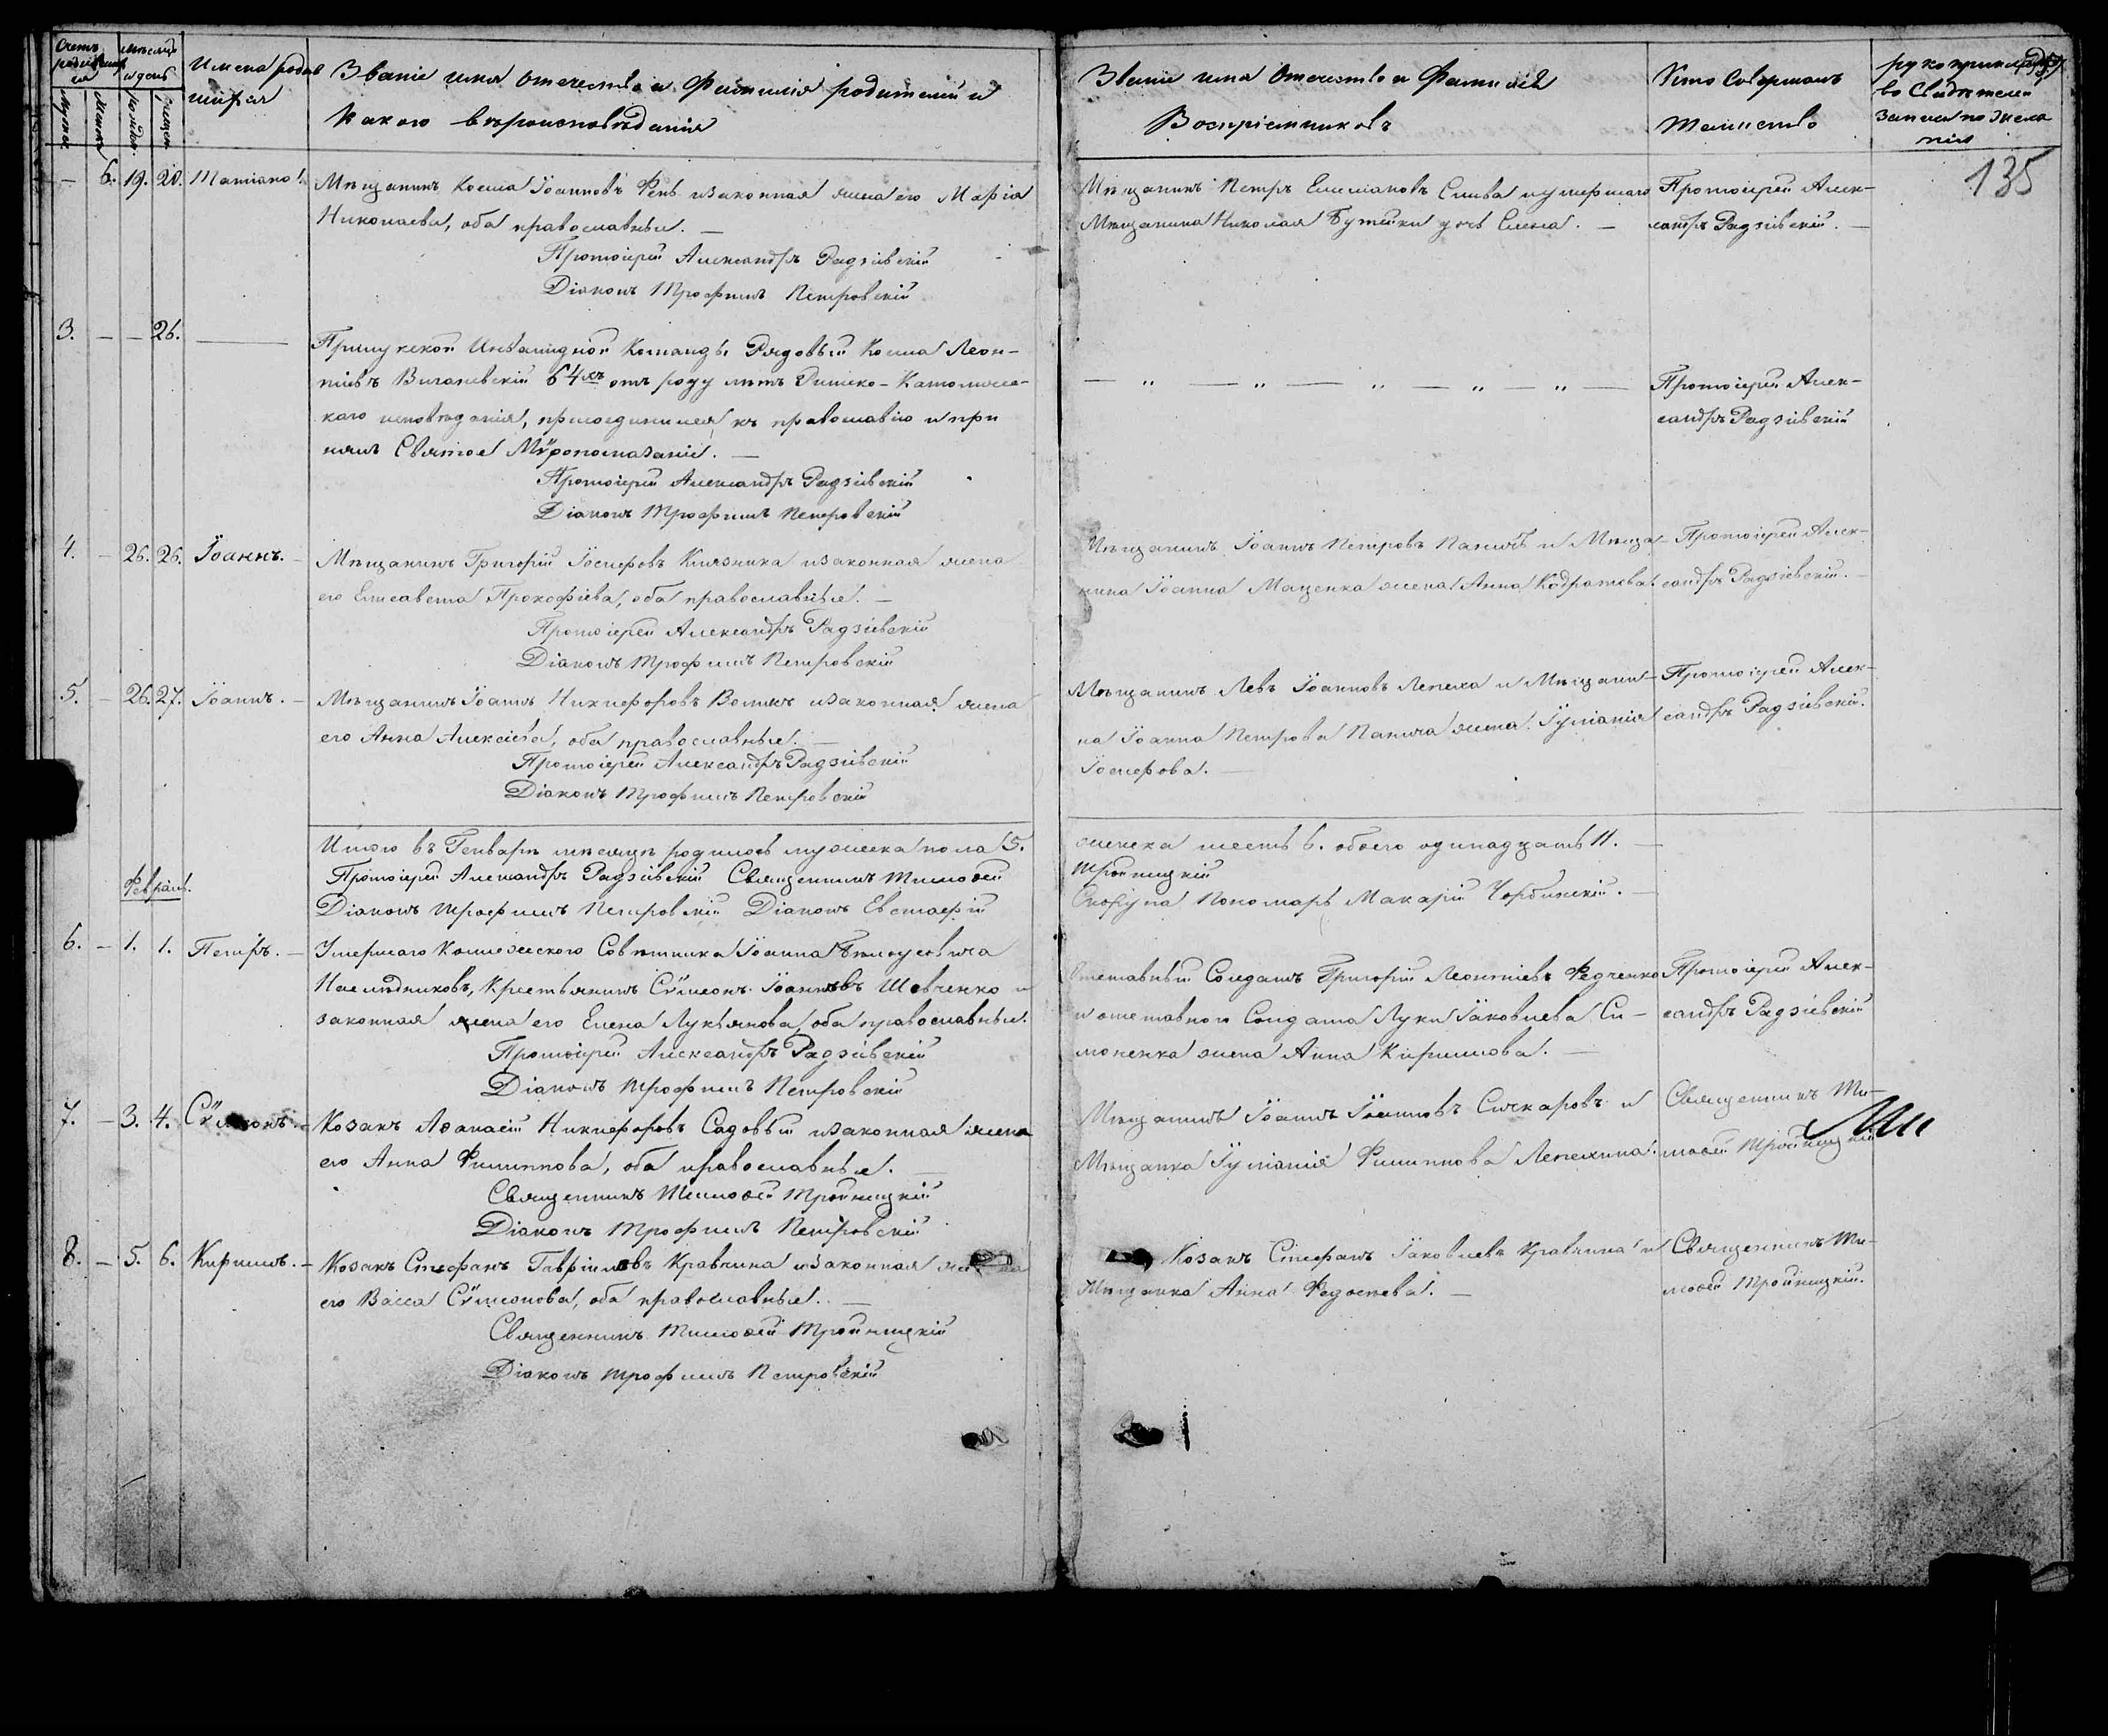 Счетъ родившихся
Мужск. Женск.
Мѣсяцъ и день
рожден. крещен.
Имена родившихся
Званіе имя отечество и Фамилія родителей и
какого вѣроисповѣданія
Званіе имя Отечество и Фамилія
Воспріемниковъ
Кто Совершалъ
таинство
рукоприкладство
Свидѣтелей
записи по жела
нію
135
— 6. 19. 20. Татіана.
Мѣщанинъ Косма Іоанновъ и законная жена его Марія
Николаева, оба православные. —
Протоіерей Александръ Радзіевскій
Діаконъ Трофимъ Петровскій
Мѣщанинъ Петръ Слива и умершаго
Мѣщанина Николая дочь Елена. —
Протоіерей Алек-
сандръ Радзіевскій. —
3. — — 26. —
Прилукской Инвалидной Команды Рядовый Косма Леон-
тіевъ 64хъ отъ роду лѣтъ Римско-Католичес-
каго исповѣданія, присоединился къ православію и при
нялъ Святое Мѵропомазаніе. —
Протоіерей Александръ Радзіевскій
Діаконъ Трофимъ Петровскій
— „ — „ — „ — „ — „ —
Протоіерей Алек-
сандръ Радзіевскій
4. — 26. 26. Іоаннъ. —
Мѣщанинъ Григорій Іосифовъ и законная жена
его Елисавета Прокофіева, оба православные. —
Протоіерей Александръ Радзіевскій
Діаконъ Трофимъ Петровскій
Мѣщанинъ Іоаннъ Петровъ Паничъ и Мѣща-
нина Іоанна Маценка жена Анна Кодратова.
Протоіерей Алек-
сандръ Радзіевскій. —
5. — 26. 27. Іоаннъ. —
Мѣщанинъ Іоаннъ Никифоровъ и законная жена
его Анна Алексіева, оба православные. —
Протоіерей Александръ Радзіевскій
Діаконъ Трофимъ Петровскій
Мѣщанинъ Левъ Іоанновъ Лепеха и Мѣщани-
на Іоанна Петрова Панича жена Іуліанія
Іосифова. —
Протоіерей Алек-
сандръ Радзіевскій.
Итого въ Генварѣ мѣсяцѣ родилось мужеска пола 5.
женска шесть 6. обоего одинадцать 11. —
Протоіерей Александръ Радзіевскій Священникъ Тимоѳей
Тройницкій
Діаконъ Трофимъ Петровскій Діаконъ Евстафій
Пономарь Макарій —
Февраль.
6. — 1. 1. Петръ. —
Умершаго Коллежского Совѣтника Іоанна
Наслѣдниковъ, Крестьянинъ Сѵмеонъ Іоанновъ Шевченко и
законная жена его Елена Лукьянова, оба православные.
Протоіерей Александръ Радзіевскій
Діаконъ Трофимъ Петровскій
Отставный Солдатъ Григорій Леонтіевъ Федченко
и отставного Солдата Луки Іаковлева Си-
моненка жена Анна Кириллова. —
Протоіерей Алек-
сандръ Радзіевскій
7. — 3. 4. Сѵмеонъ. —
Козакъ Аѳанасій Никифоровъ Садовый и законная жена
его Анна Филиппова, оба православные. —
Священникъ Тимоѳей Тройницкій
Діаконъ Трофимъ Петровскій
Мѣщанинъ Іоаннъ Іоанновъ и
Мѣщанка Іуліанія Филиппова Лепехина.
Священникъ Ти-
моѳей Тройницкій
8. — 5. 6. Кириллъ. —
Козакъ Стефанъ Гавріиловъ Кравчина и законная жена
его Васса Сѵмеонова, оба православные. —
Священникъ Тимоѳей Тройницкій
Діаконъ Трофимъ Петровскій
Козакъ Стефанъ Іаковлевъ Кравчина и
Мѣщанка Анна Федосѣева. —
Священникъ Ти-
моѳей Тройницкій.